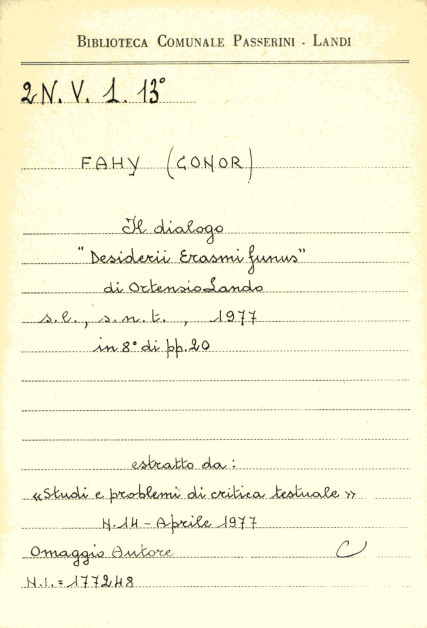 BIBLIOTECA COMUNALE PASSERINI - LANDI
2N. V. 1. 13°
FAHY (CONOR)
Il dialogo
"Desiderii Erasmi funus"
di Ortensio Lando
s.l., s.n.t., 1977
in 8° di pp. 20
estratto da:
«Studi e problemi di critica testuale»
N. 14 - Aprile 1977
Omaggio Autore C
N.I. = 177248